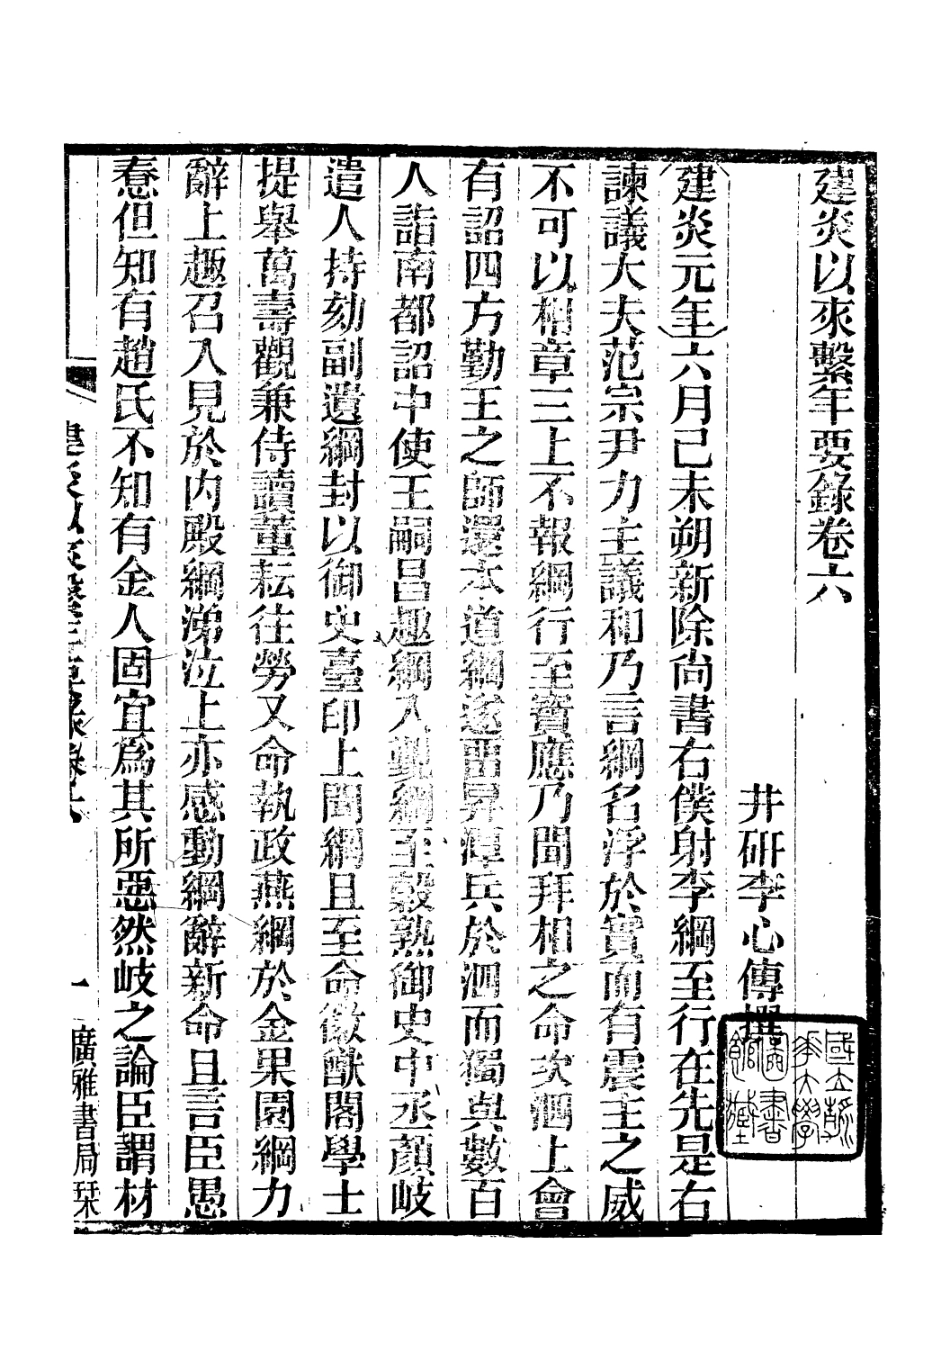 建炎以來繫年要錄卷六
井研李心傳撰
建炎元年六月己未朔新除尚書右僕射李綱至行在先是右
諫議大夫范宗尹力主議和乃言綱名浮於實而有震主之威
不可以相章三上不報綱行至寶應乃聞拜相之命次泗上會
有詔四方勤王之師還本道綱遂畱昇潭兵於泗而獨與數百
人詣南都詔中使王嗣昌趣綱入覲綱至穀熟御史中丞顏岐
遣人持劾副遺綱封以御史臺印上聞綱且至命徽猷閣學士
提舉萬壽觀兼侍讀董耘往勞又命執政燕綱於金果園綱力
辭上趣召入見於內殿綱涕泣上亦感動綱辭新命且言臣愚
惷但知有趙氏不知有金人固宜爲其所惡然岐之論臣謂材
建炎以來繫年要錄卷六
一
廣雅書局栞
國立清華大學圖書館藏